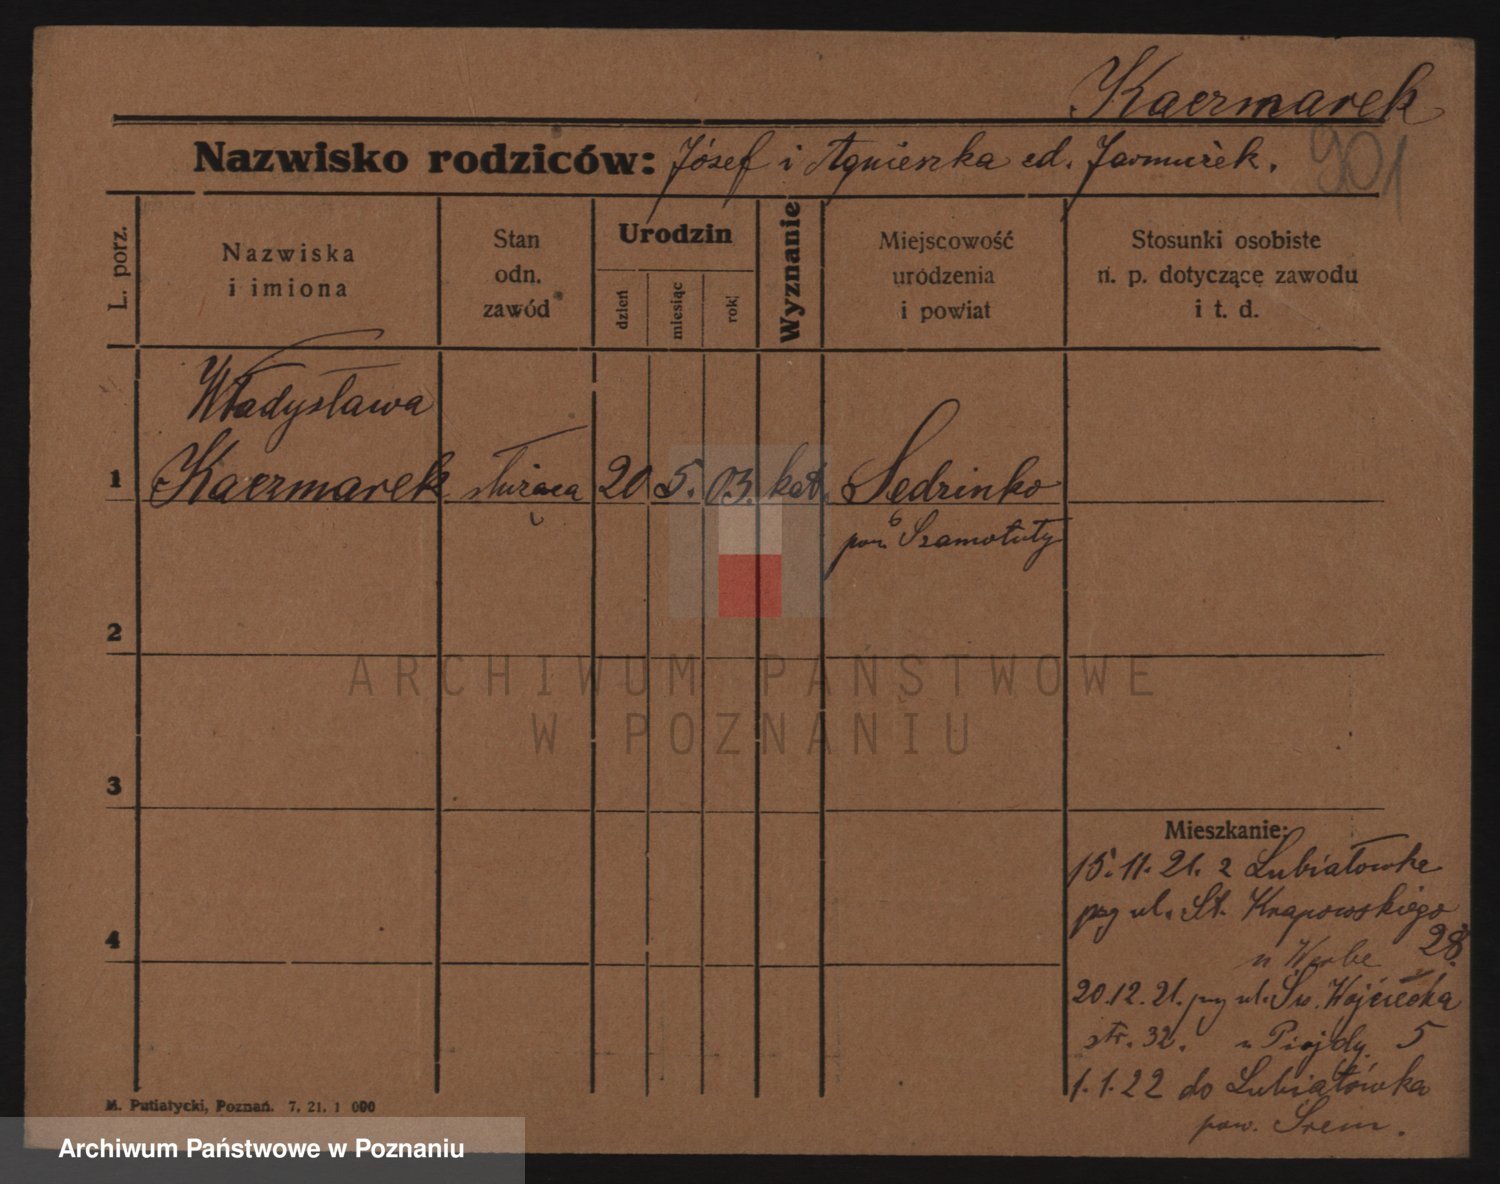 Kaczmarek
Nazwisko rodziców: Józef i Agnieszka cd. Jarmużek.
901
L. porz.
Nazwiska
i imiona
Stan
odn.
zawód
Urodzin
dzień
miesiąc
rok
Wyznanie
Miejscowość
urodzenia
i powiat
Stosunki osobiste
n. p. dotyczące zawodu
i t. d.
Władysława
1 Kaczmarek służąca 20 5. 03. kat. Sędzinko
pow. Szamotuły
2
3
4
ARCHIWUM PAŃSTWOWE
W POZNANIU
Mieszkanie:
15.11.21. z Lubiatówka
przy ul. St. Knapowskiego
28.
20.12.21. przy ul. Św. Wojciecha
str. 32. 5
1.1.22 do Lubiatówka
pow. Śrem.
M. Putiatycki, Poznań. 7. 21. 1 000
Archiwum Państwowe w Poznaniu